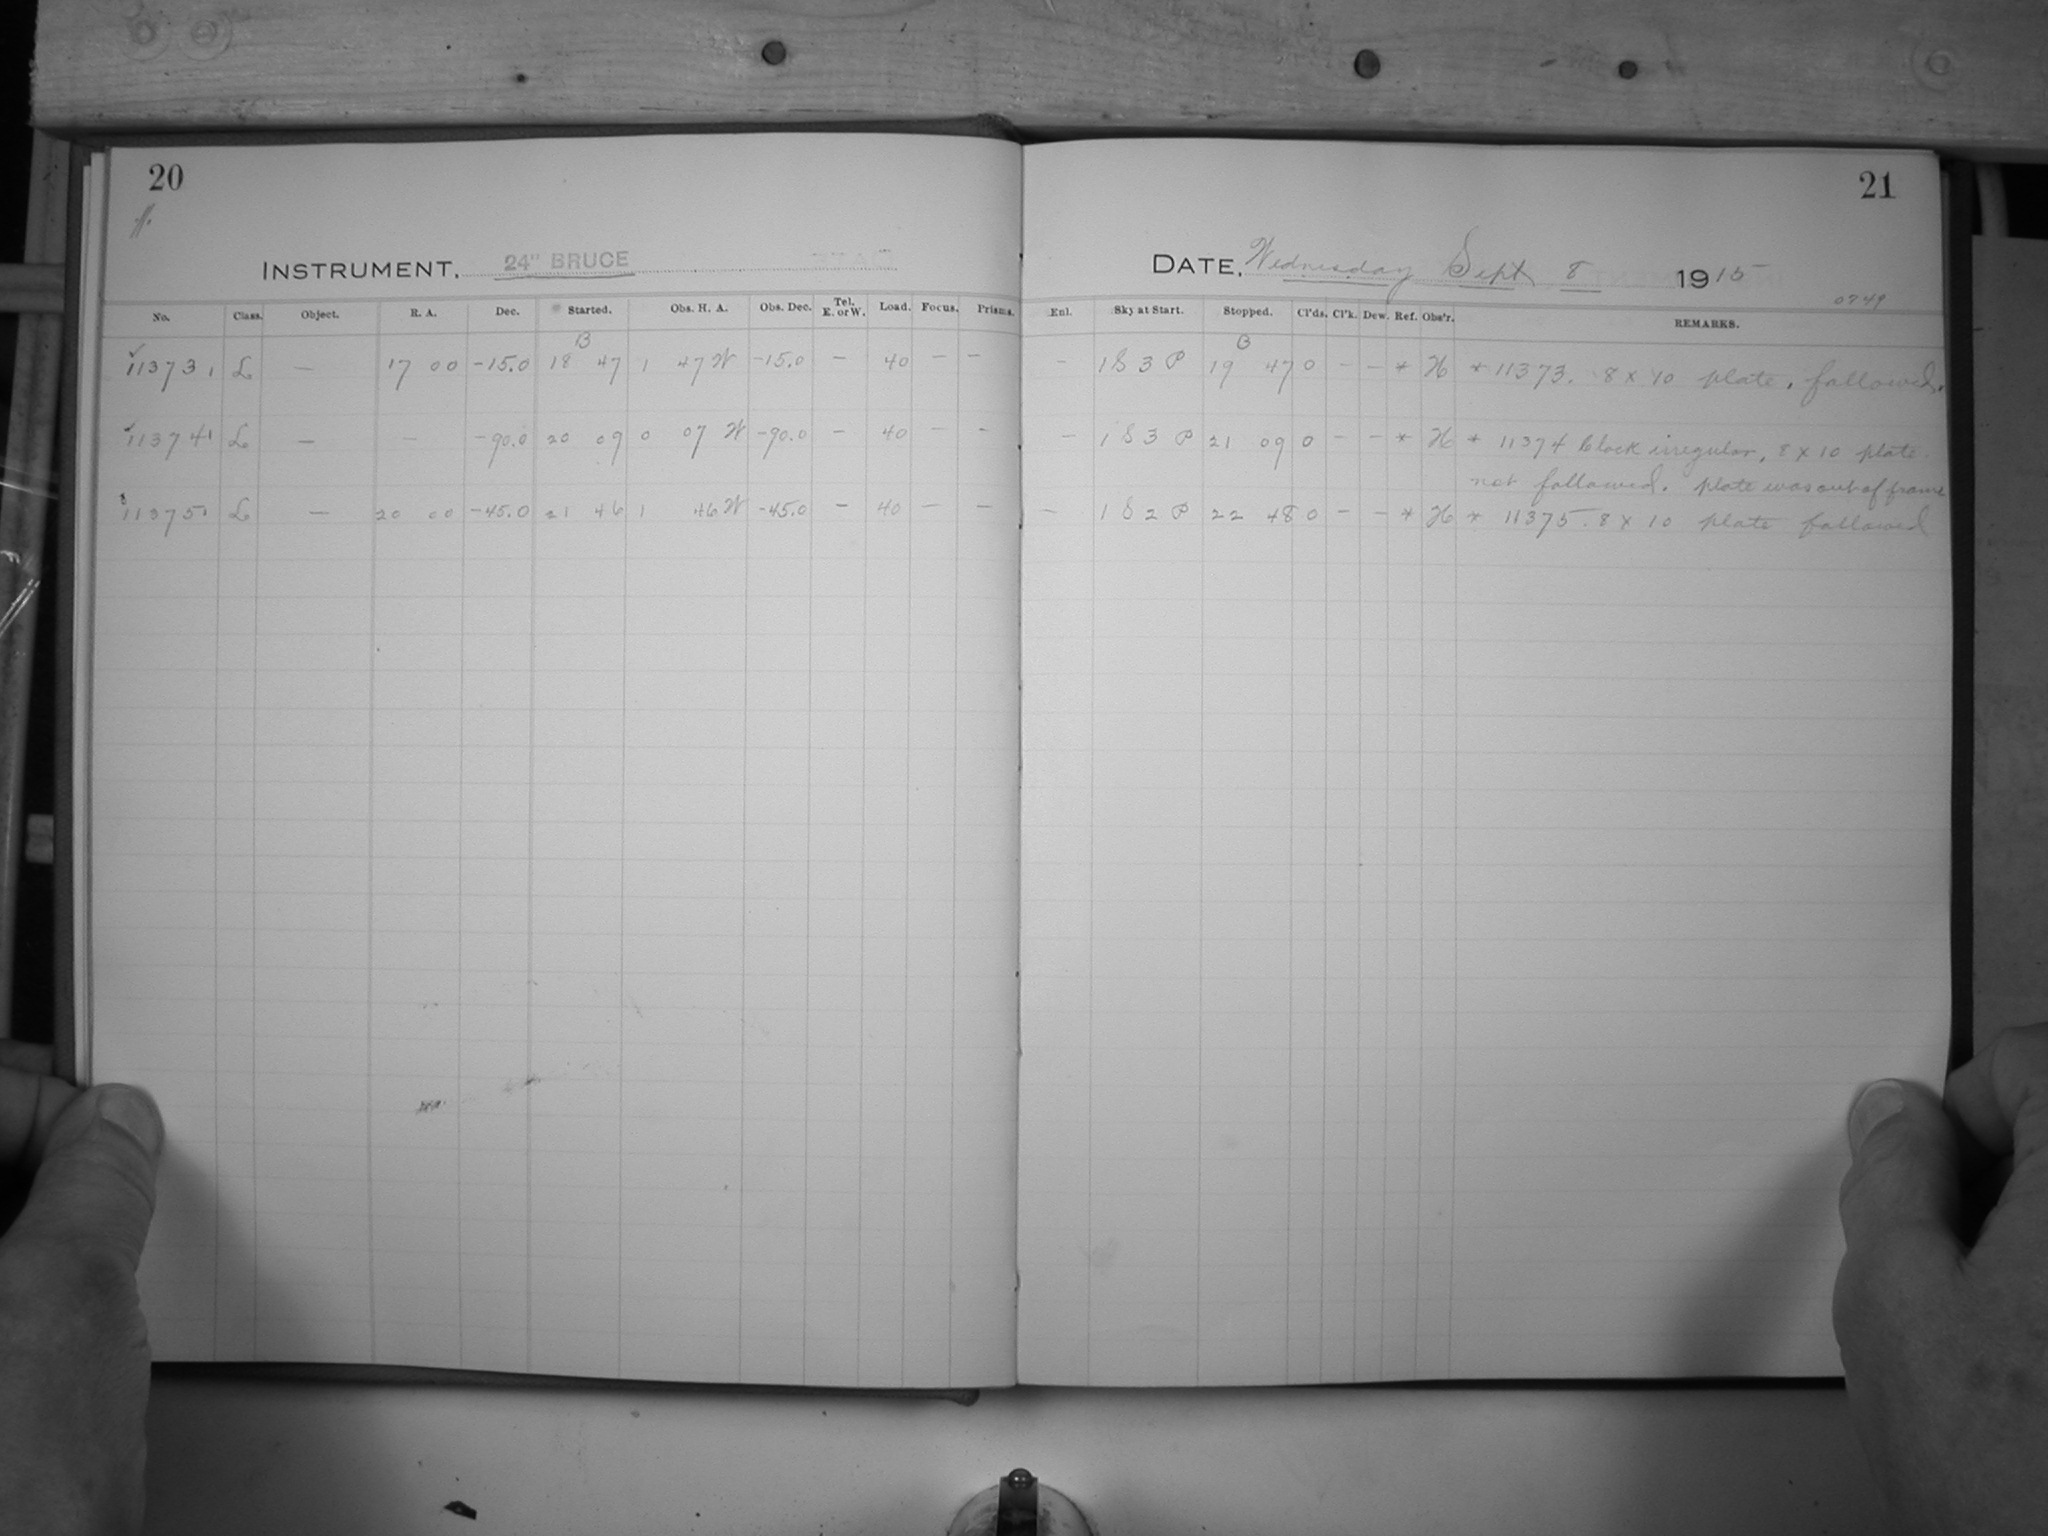 20
21
INSTRUMENT, 24" BRUCE
DATE, Wednesday Sept 8 1915
0749
No. Class. Object. R. A. Dec. Started. Obs. H. A. Obs. Dec. Tel. E. or W. Load. Focus. Prisms. Enl. Sky at Start. Stopped. Cl'ds. Cl'k. Dew. Ref. Obs'r. REMARKS.
B B
11373 L — 17 00 -15.0 18 47 1 47 W -15.0 — 40 — — — 1 S 3 P 19 47 0 — — * H * 11373. 8 x 10 plate, followed.
11374 L — — -90.0 20 09 0 07 W -90.0 — 40 — — — 1 S 3 P 21 09 0 — — * H * 11374 Clock irregular, 8 x 10 plate
not followed. plate was out of frame
11375 L — 20 00 -45.0 21 46 1 46 W -45.0 — 40 — — — 1 S 2 P 22 48 0 — — * H * 11375. 8 x 10 plate followed